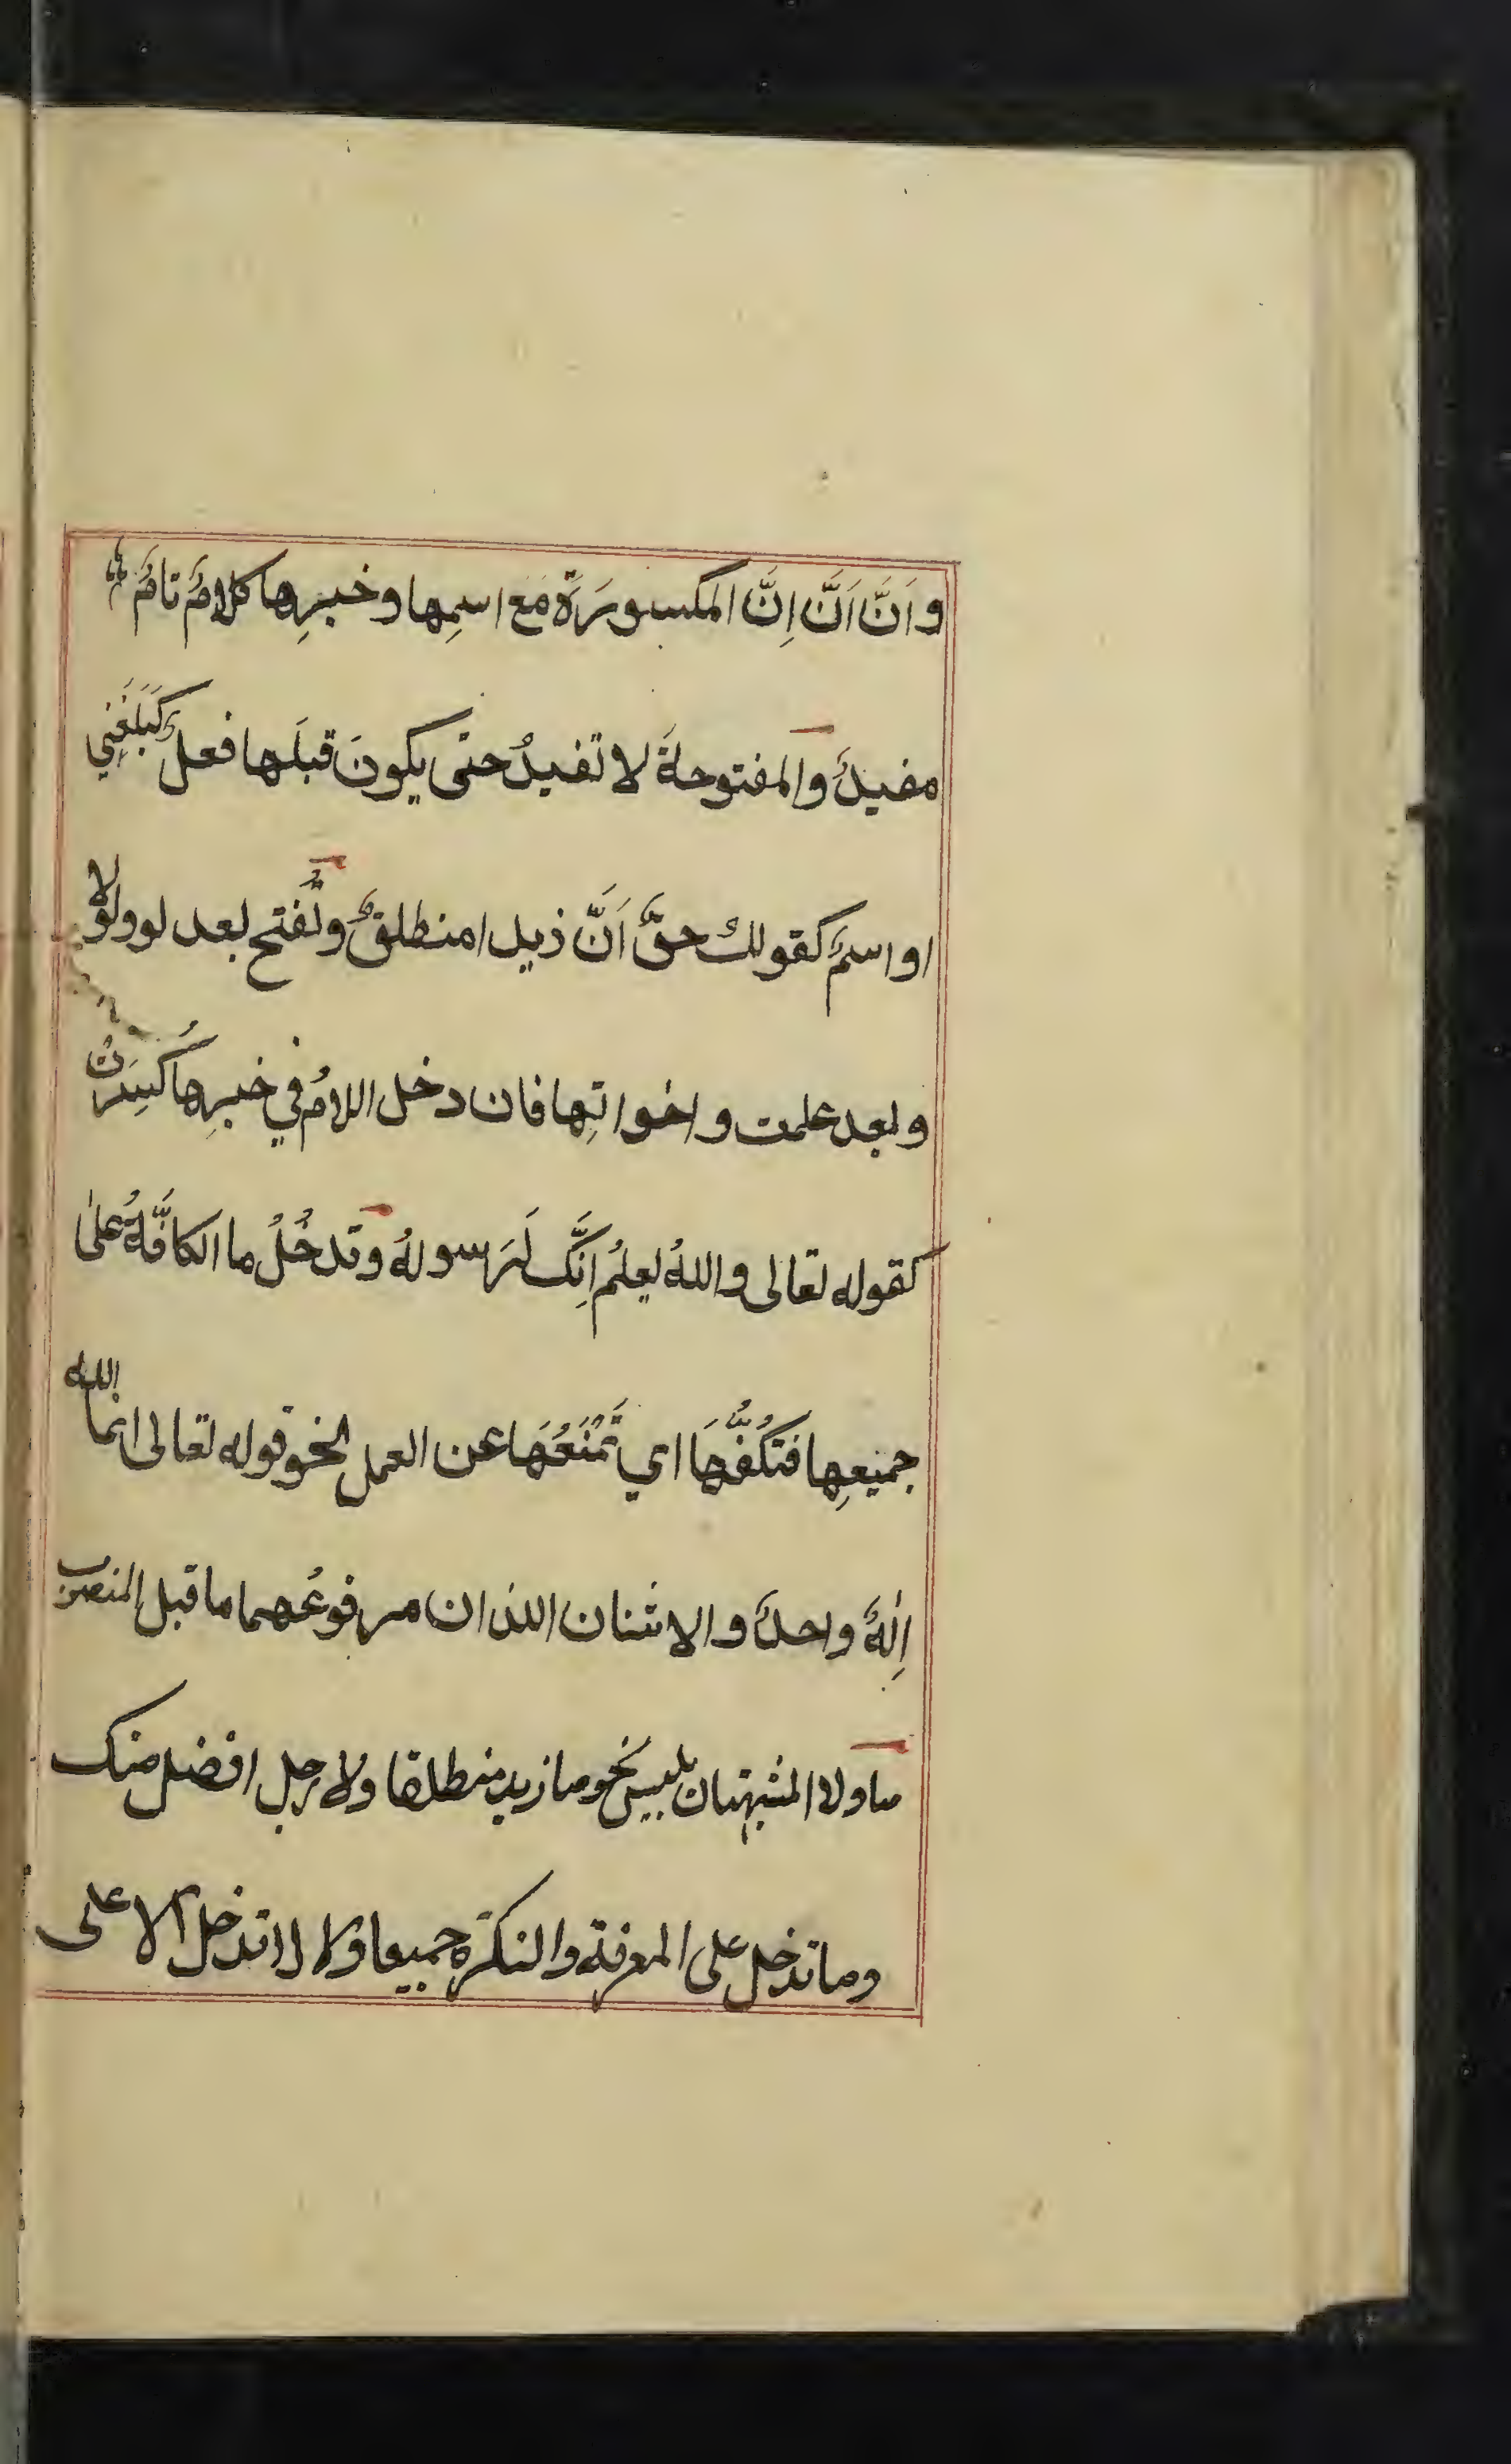 و اَنَّ اَنَّ اِنَّ المكسورَةَ مَعَ اسمِها و خبرِها كلامٌ تامٌ
مفيدٌ والمفتوحةَ لا تفيدُ حتى يكونَ قبلَها فعلٌ كَبَلَغَنِي
او اسمٌ كقولك حقٌّ اَنَّ زيدا منطلقٌ وتُفتح بعد لو ولولا
وبعد علمت و اخواتِها فان دخل اللامُ في خبرِها كُسِرَتْ
كقوله تعالى واللهُ يعلمُ اِنَّكَ لَرَسولهُ وتدخُلُ ما الكافَّةُ على
جميعِها فتكُفُّهَا اي تَمْنَعُهَا عن العمل نحو قوله تعالى انما الله
اِلٰهٌ واحدٌ و الاثنان اللذان مرفوعُهما ما قبل المنصوب
ما ولا المشبهتان بليس نحو ما زيد منطلقا ولا رجل افضل منك
وما تدخل على المعرفة والنكرة جميعا ولا لا تدخل الا على